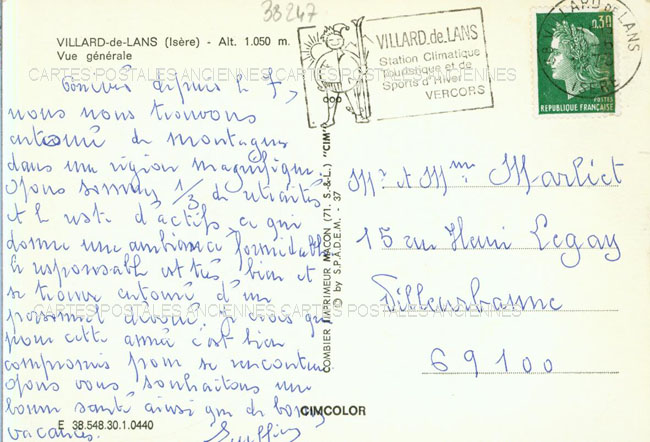 38247
VILLARD-de-LANS (Isère) - Alt. 1.050 m.
Vue générale
VILLARD.de.LANS
Station Climatique
Touristique et de
Sports d'Hiver
VERCORS
VILLARD DE LANS
0,30
POSTES
REPUBLIQUE FRANÇAISE
CARTES POSTALES ANCIENNES CARTES POSTALES ANCIENNES
depuis le 7,
nous nous trouvons
entouré de montagnes
dans une région magnifique
nous sommes 1/3 de retraités
et le reste d'actifs, ce qui
donne une ambiance formidable
le responsable est très bien et
se trouve entouré d'un
personnel dévoué. Je crois que
pour cette année c'est bien
compromis pour se rencontrer
nous vous souhaitons une
bonne santé ainsi que de bonnes
vacances.
CARTES POSTALES ANCIENNES CARTES POSTALES ANCIENNES
COMBIER IMPRIMEUR MACON (71. S.-&-L.) "CIM"
© by S.P.A.D.E.M. : 37
Mr et Mme Marliet
15 rue Henri Legay
Villeurbanne
69100
CIMCOLOR
E 38.548.30.1.0440